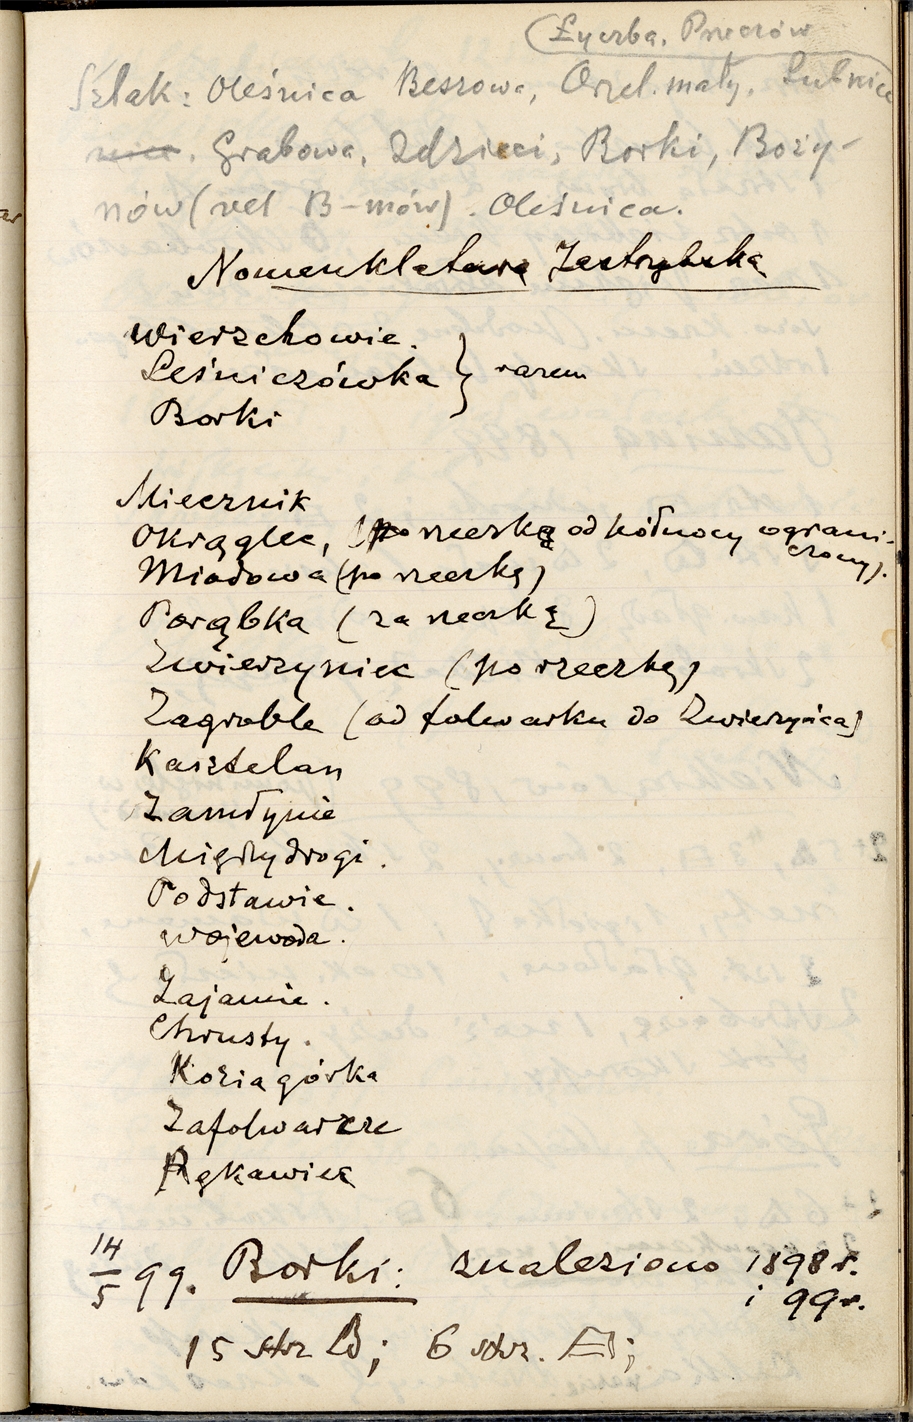 Łyczba, Pnerów
Szlak: Oleśnica Beszowa, Orzel. mały, Łubnice
Grabowa, Zdzieci, Borki, Boży-
nów (vel B-mów). Oleśnica.
Nomenklatura Jastrzębska
Wierzchowie.
Leśniczówka } razem
Borki
Miecznik
Okrąglec, (po rzeczkę od północy ograni-
czony).
Miodowa (po rzeczkę)
Porąbka (za rzeczką)
Zwierzyniec (po rzeczkę)
Zagroble (od folwarku do Zwierzyńca)
Kasztelan
Zamłynie
Międzydrogi.
Podstawie.
Wojewoda.
Zajamie.
Chrusty.
Kozia górka
Zafolwarcze
Rękawiec
14/5 99. Borki: znaleziono 1898 r.
i 99 r.
15 strz ; 6 strz. ;